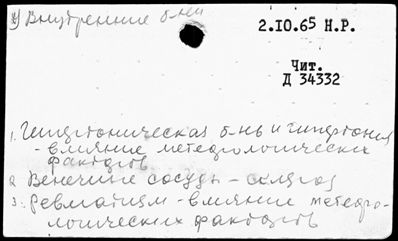 Внутренние б-ни
2.IO.65 Н.Р.
Чит.
Д 34332
1. Гипертоническая б-нь и гипертония
- влияние метеорологических
факторов
2. Венечные сосуды - склероз
3. Ревматизм - влияние метеоро-
логических факторов